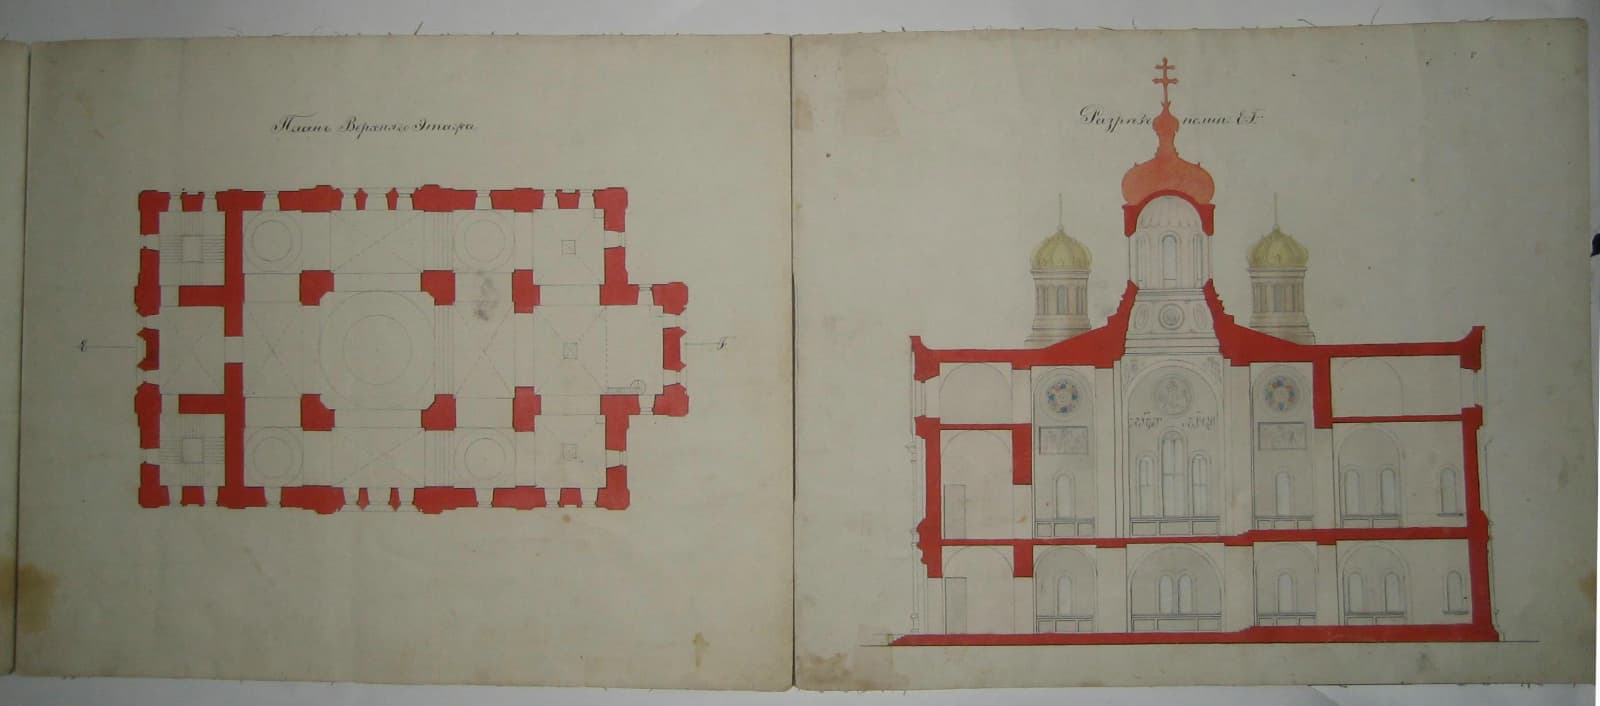 Планъ Верхняго Этажа
Е
Г
Разрѣзъ по лин: ЕГ